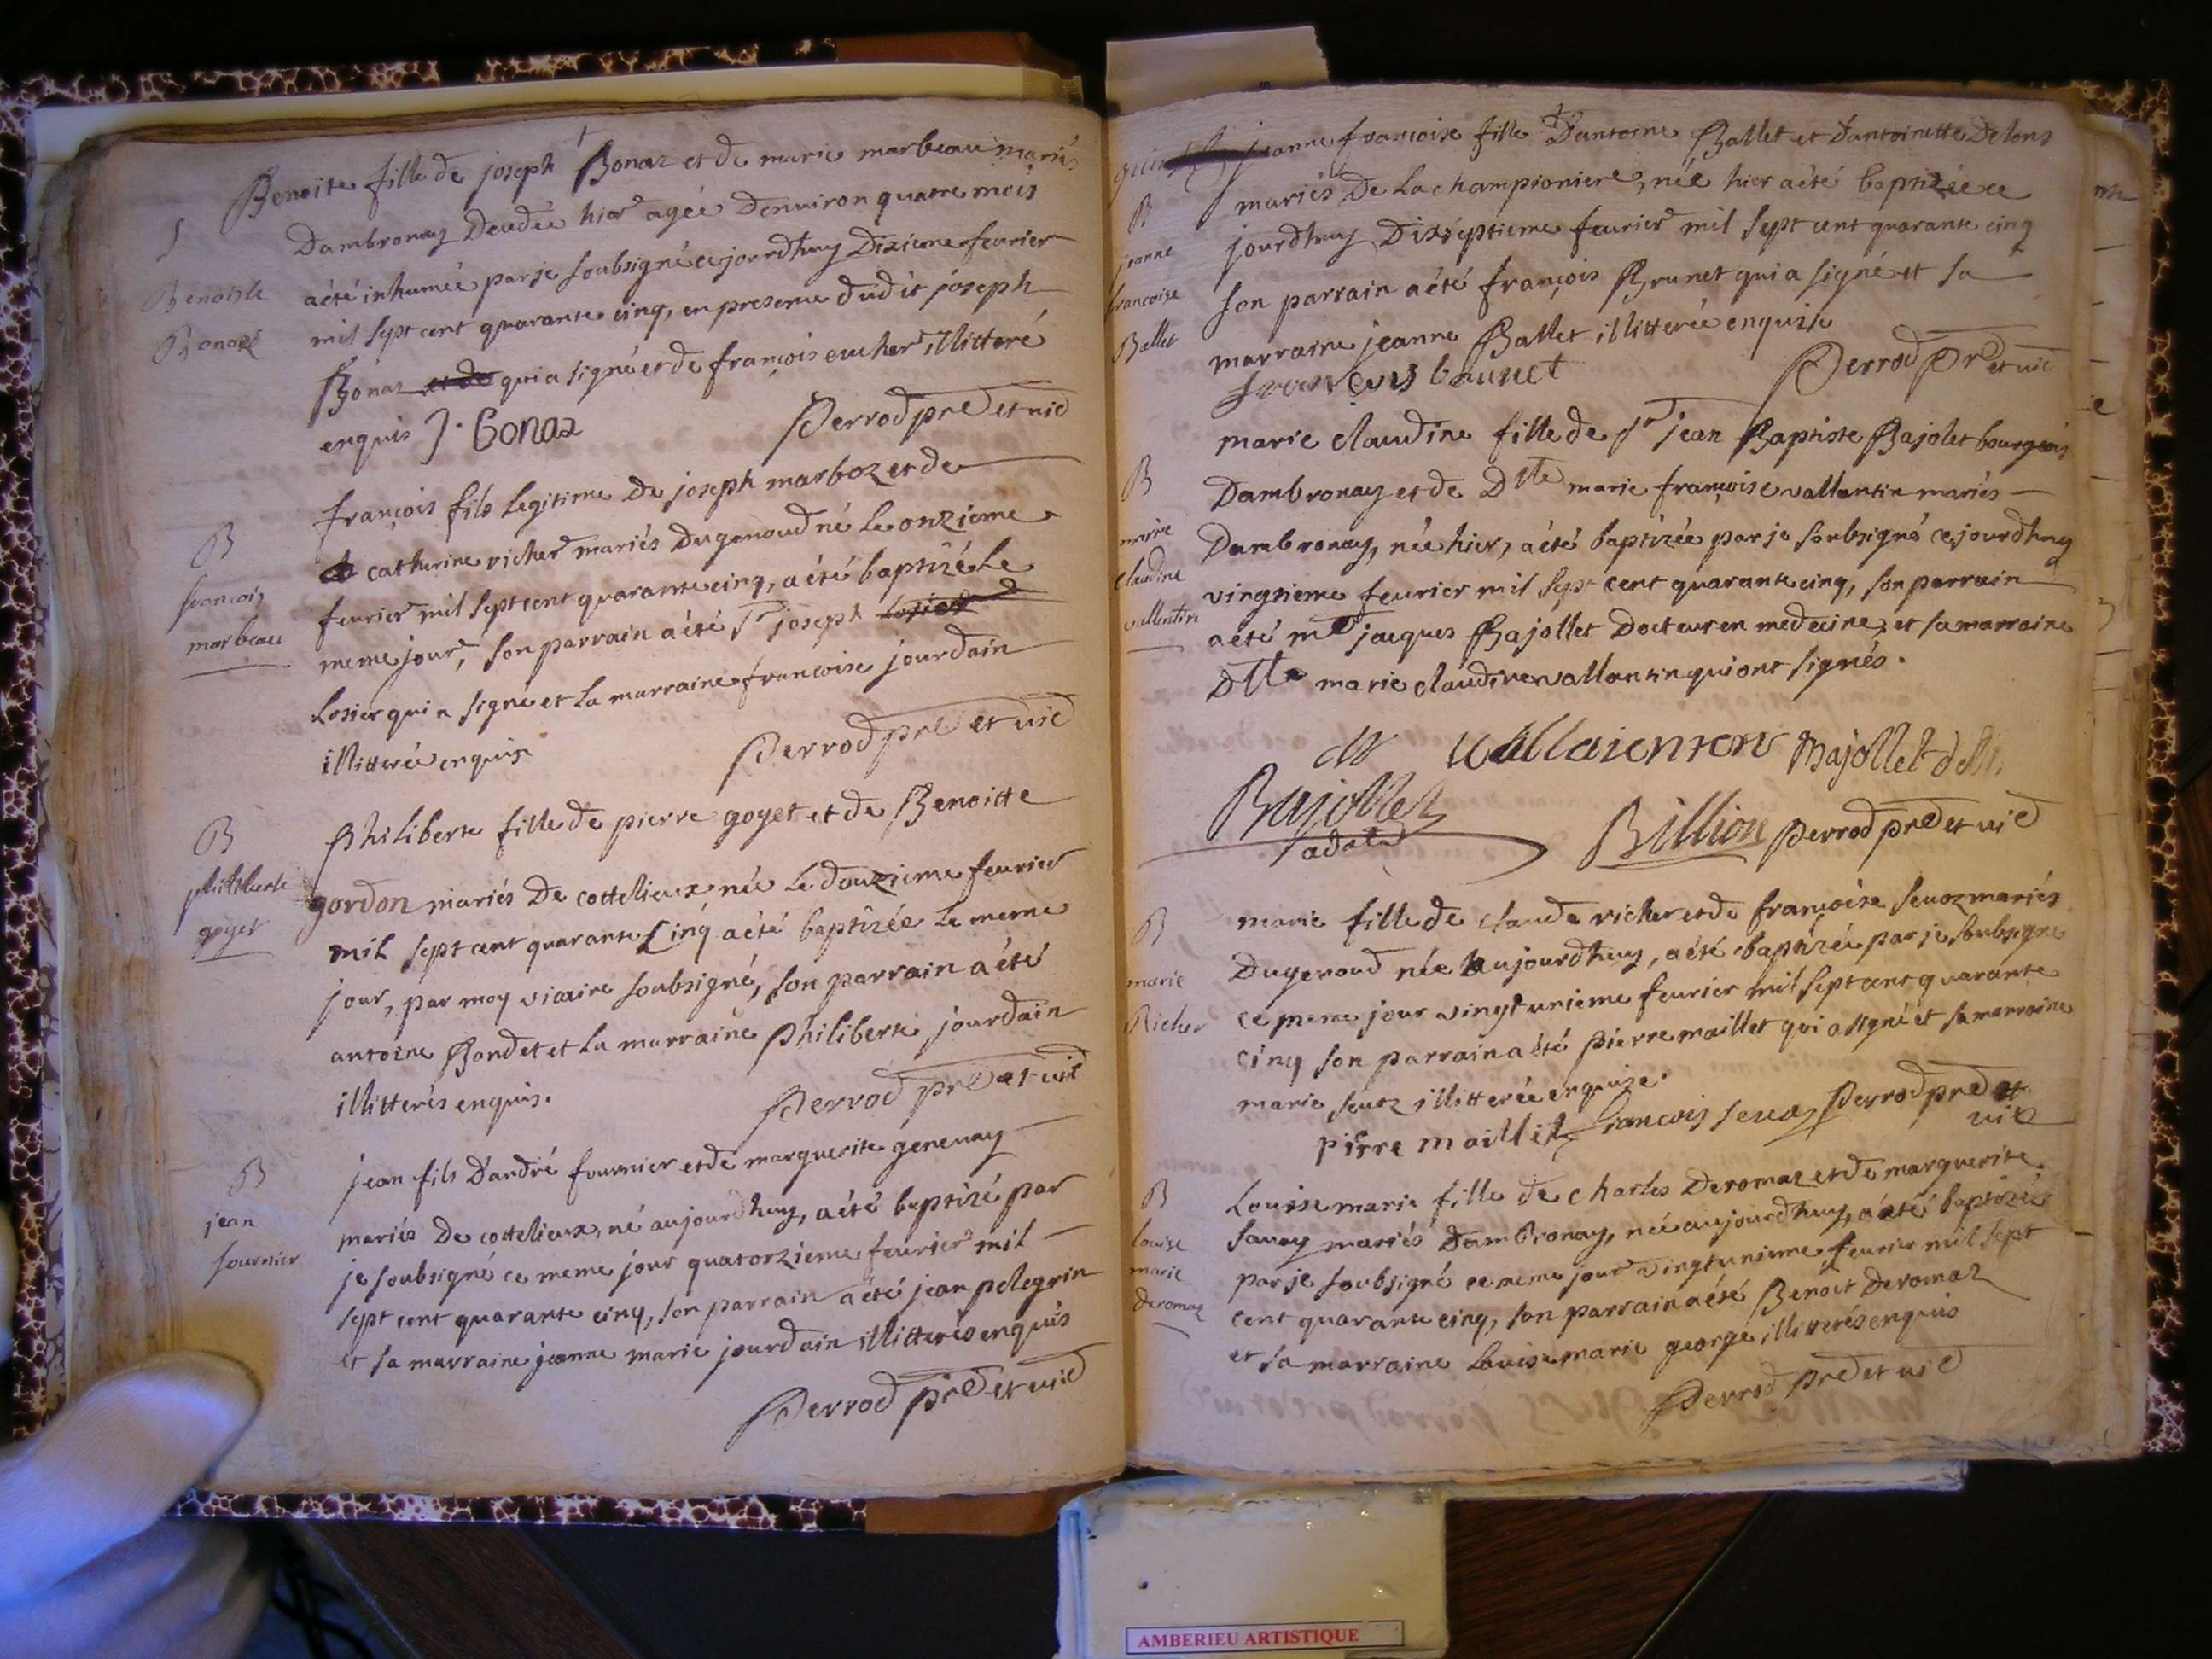 Benoite fille de joseph Bonaz et de marie marbeau mariés
S
Dambronay Decedée hier agée Denuiron quatre mois
Bénoiste
Bonaz
aété inhumée parje soubsigné cejourdhuy Dixieme feurier
mil sept cent quarante cinq, en presence dudit joseph
Bonaz et de qui a signé et de françois eucher illitteré
enquis J. Bonaz Perrod pre et vic
B
francois
marbeau
françois fils legitime De joseph marboz et de
catherine richer mariés Dugeroud né le onzieme
feurier mil sept cent quarante cinq, a été baptizé le
meme jour, son parrain a été Sr joseph
Losier qui a signé et la marraine francoise jourdain
illitterée enquise Perrod pre et vic
B
philiberte
goyet
Philiberte fille de pierre goyet et de Benoitte
gordon mariés De cottelieux née le douzieme feurier
mil sept cent quarante Cinq aété baptizée le meme
jour, par moy vicaire soubsigné, son parrain a été
antoine Bondet et la marraine Philiberte jourdain
illitterés enquis. Perrod pre et vic
B
jean
fournier
jean fils D'andré fournier et de marguerite genevay
mariés De cottelieux, né aujourdhuy, a été baptizé par
je soubsigné ce meme jour quatorzieme feurier mil
sept cent quarante cinq, son parrain a été jean pelegrin
et sa marraine jeanne marie jourdain illitterés enquis
Perrod pre et vic
jeanne francoise fille D'antoine Ballet et D'antoinette Delons
B
jeanne
francoise
Ballet
mariés De La championiere, née hier a été baptizée ce
jourdhuy Dixseptieme feurier mil sept cent quarante cinq
son parrain a été françois Brunet qui a signé et sa
marraine jeanne Ballet illitterée enquise
francoys brunet Perrod pre et vic
B
marie
claudine
vallentin
marie claudine fille de Sr jean Baptiste Bajolet bourgeois
Dambronay et de Dlle marie françoise vallantin mariés
Dambronay, née hier, a été baptizée par je soubsigné cejourdhuy
vingtieme feurier mil sept cent quarante cinq, son parrain
a été me jacques Bajollet Docteur en medecine, et sa marraine
Dlle marie claudine vallantin qui ont signés.
Bajollet
Bajollet
Billion Perrod pre et vic
B
marie
Richer
marie fille de claude richer et de françoise seuoz mariés
Dugeroud née aujourdhuy, a été baptizée par je soubsigne
ce meme jour vingtunieme feurier mil sept cent quarante
cinq son parrain a été pierre maillet qui a signé et sa marraine
marie seuoz illitterée enquise.
pirre maillet francois seuoz Perrod pre et
vic
B
louise
marie
deromaz
Louise marie fille de charles Deromaz et de marguerite
sauay mariés Dambronay, née aujourdhuy, a été baptizée
par je soubsigné ce meme jour vingtunieme feurier mil sept
cent quarante cinq, son parrain a été Benoit Deromaz
et sa marraine Louise marie george illitterés enquis
Perrod pre et vic
AMBERIEU ARTISTIQUE